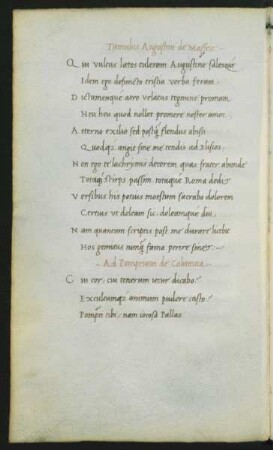 Tumulus Augustini de Maffeis
Qui vultus lætos tuleram Augustine salesque
Idem ego defuncto tristia verba feram.
Dictamenque atro velatus tegmine promam
Heu heu quod nollet promere noster amor.
Aeterno exilio sed postq̃ flendus abisti
Nen ego te lachrymis decorem quas frater abunde
Totaq; stirps passim totaque Roma dedit
Versibus his potius mœstum sacrabo dolorem
Certus ut doleam sic, doleamque diu.
Nam quancum scriptis post me durare licebit
Hos gemitus nunq̃ fama perire sinet.
Ad Pomponium de Columna
Cui cor, cui tenerum iecur dicabo?
Excultumq; animum pudore casto?
Pompei tibi: nam iocosa Pallas